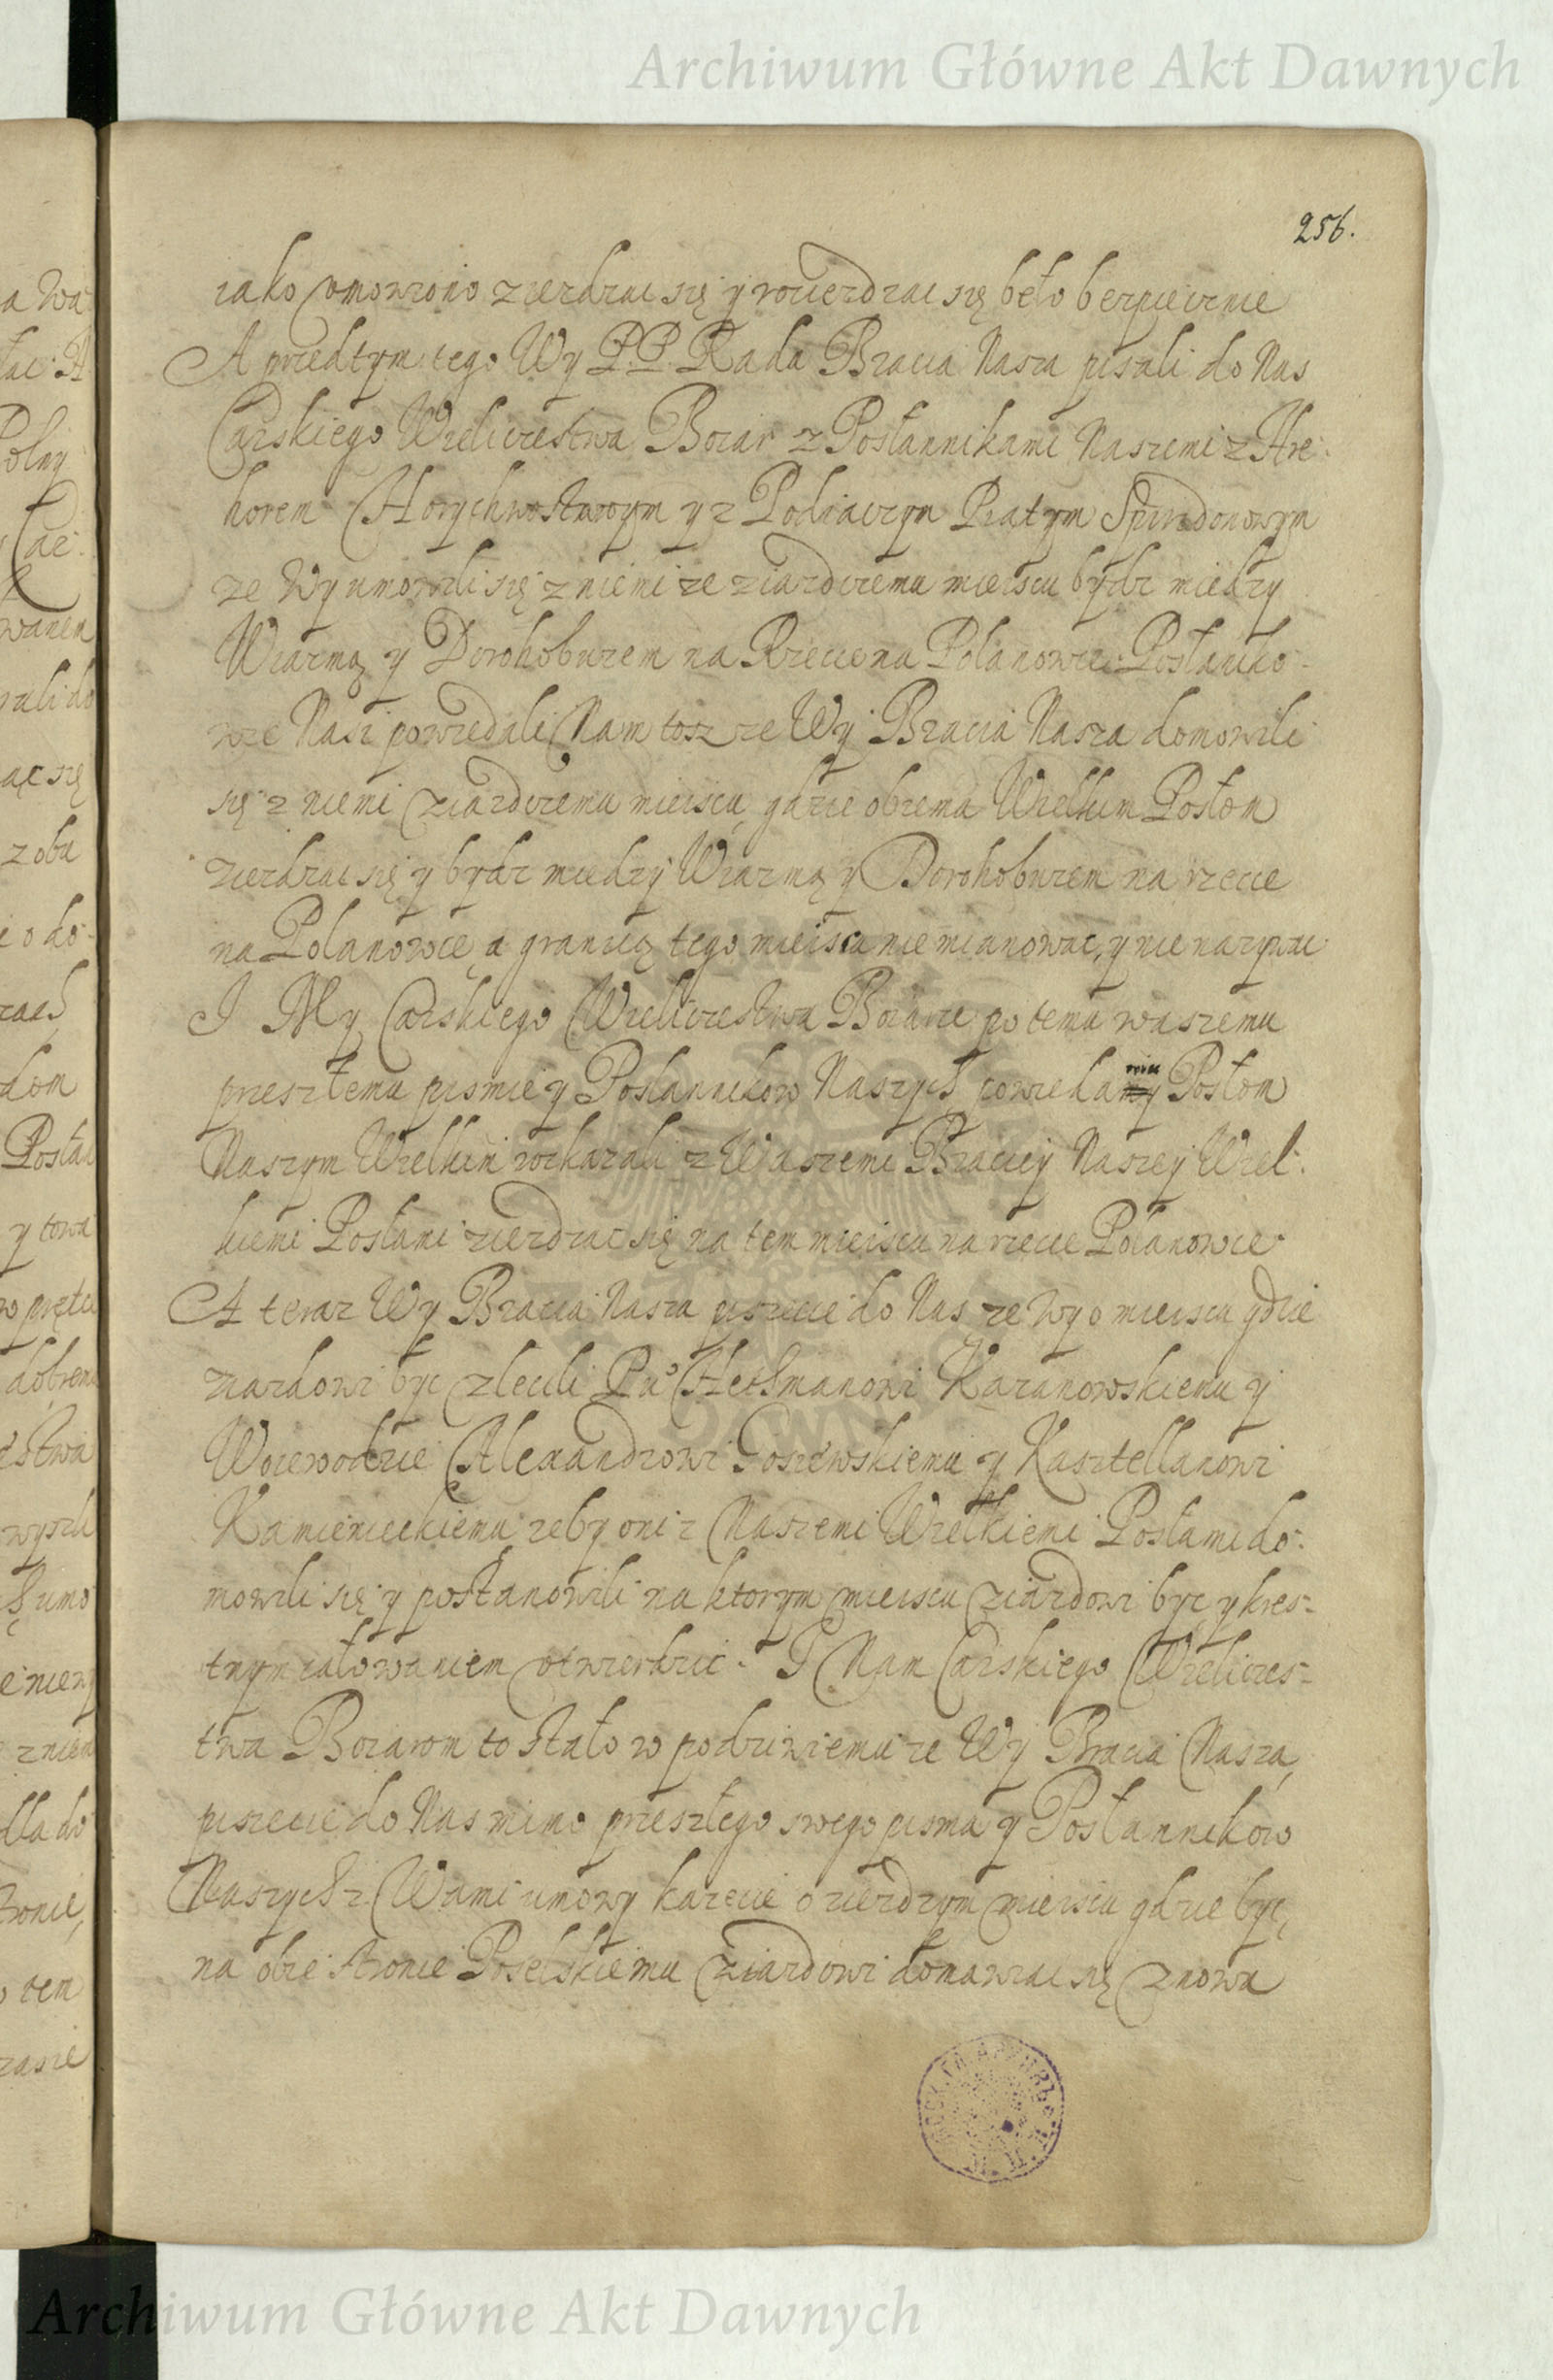 Archiwum Główne Akt Dawnych
256.
iako omowiono zierdzac się y rozierdzac się beło berpiecznie
A przedtym tego Wy P.P. Rada Bracia Nasza pisali do Nas
Carskiego Wieliczestwa Boiar z Posłannikami Naszemi z Hre-
horem Horychwostowym y z Podiaczym Piatym Spiridonowym
ze Wy umowili się z niemi ze ziazdczemu mieiscu bydz miedzy
Wiazmą y Dorohobuzem na Rzece na Polanowce. Posłanko-
wie Nasi powiedali Nam tosz ze Wy Bracia Nasza domowili
się z niemi ziazdczemu mieiscu, gdzie obiema Wielkim Posłom
zierdzac się y bydz miedzy Wiazmą y Dorohobuzem na rzece
na Polanowce, a granicą tego mieisca nie mianowac, y nie nazywac
I My Carskiego Wieliczestwa Boiare po temu waszemu
przeszłemu pismie y Posłannikow Naszych powiedaniu Posłom
Naszym Wielkim rozkazali z Waszemi Braciey Naszey Wiel-
kiemi Posłami zierdzac się na tem mieiscu na rzece Polanowce
A teraz Wy Bracia Nasza piszecie do Nas ze Wy o mieiscu gdzie
ziazdowi byc zlecili Pu Hetmanowi Kazanowskiemu y
Woiewodzie Alexandrowi Gosiewskiemu y Kasztellanowi
Kamienieckiemu zeby oni z Naszemi Wielkiemi Posłami do-
mowili się y postanowili na ktorym mieiscu ziazdowi być y kres-
tnym całowaniem otwierdzic. I Nam Carskiego Wieliczes-
twa Boiarom to stało w podziwieniu ze Wy Bracia Nasza,
piszecie do Nas mimo przeszłego swego pisma y Posłannikow
Naszych z Wami umowy kazecie o zierdzym mieiscu gdzie być,
na obie stronie Poselskiemu ziazdowi domawiac się znowu
Archiwum Główne Akt Dawnych